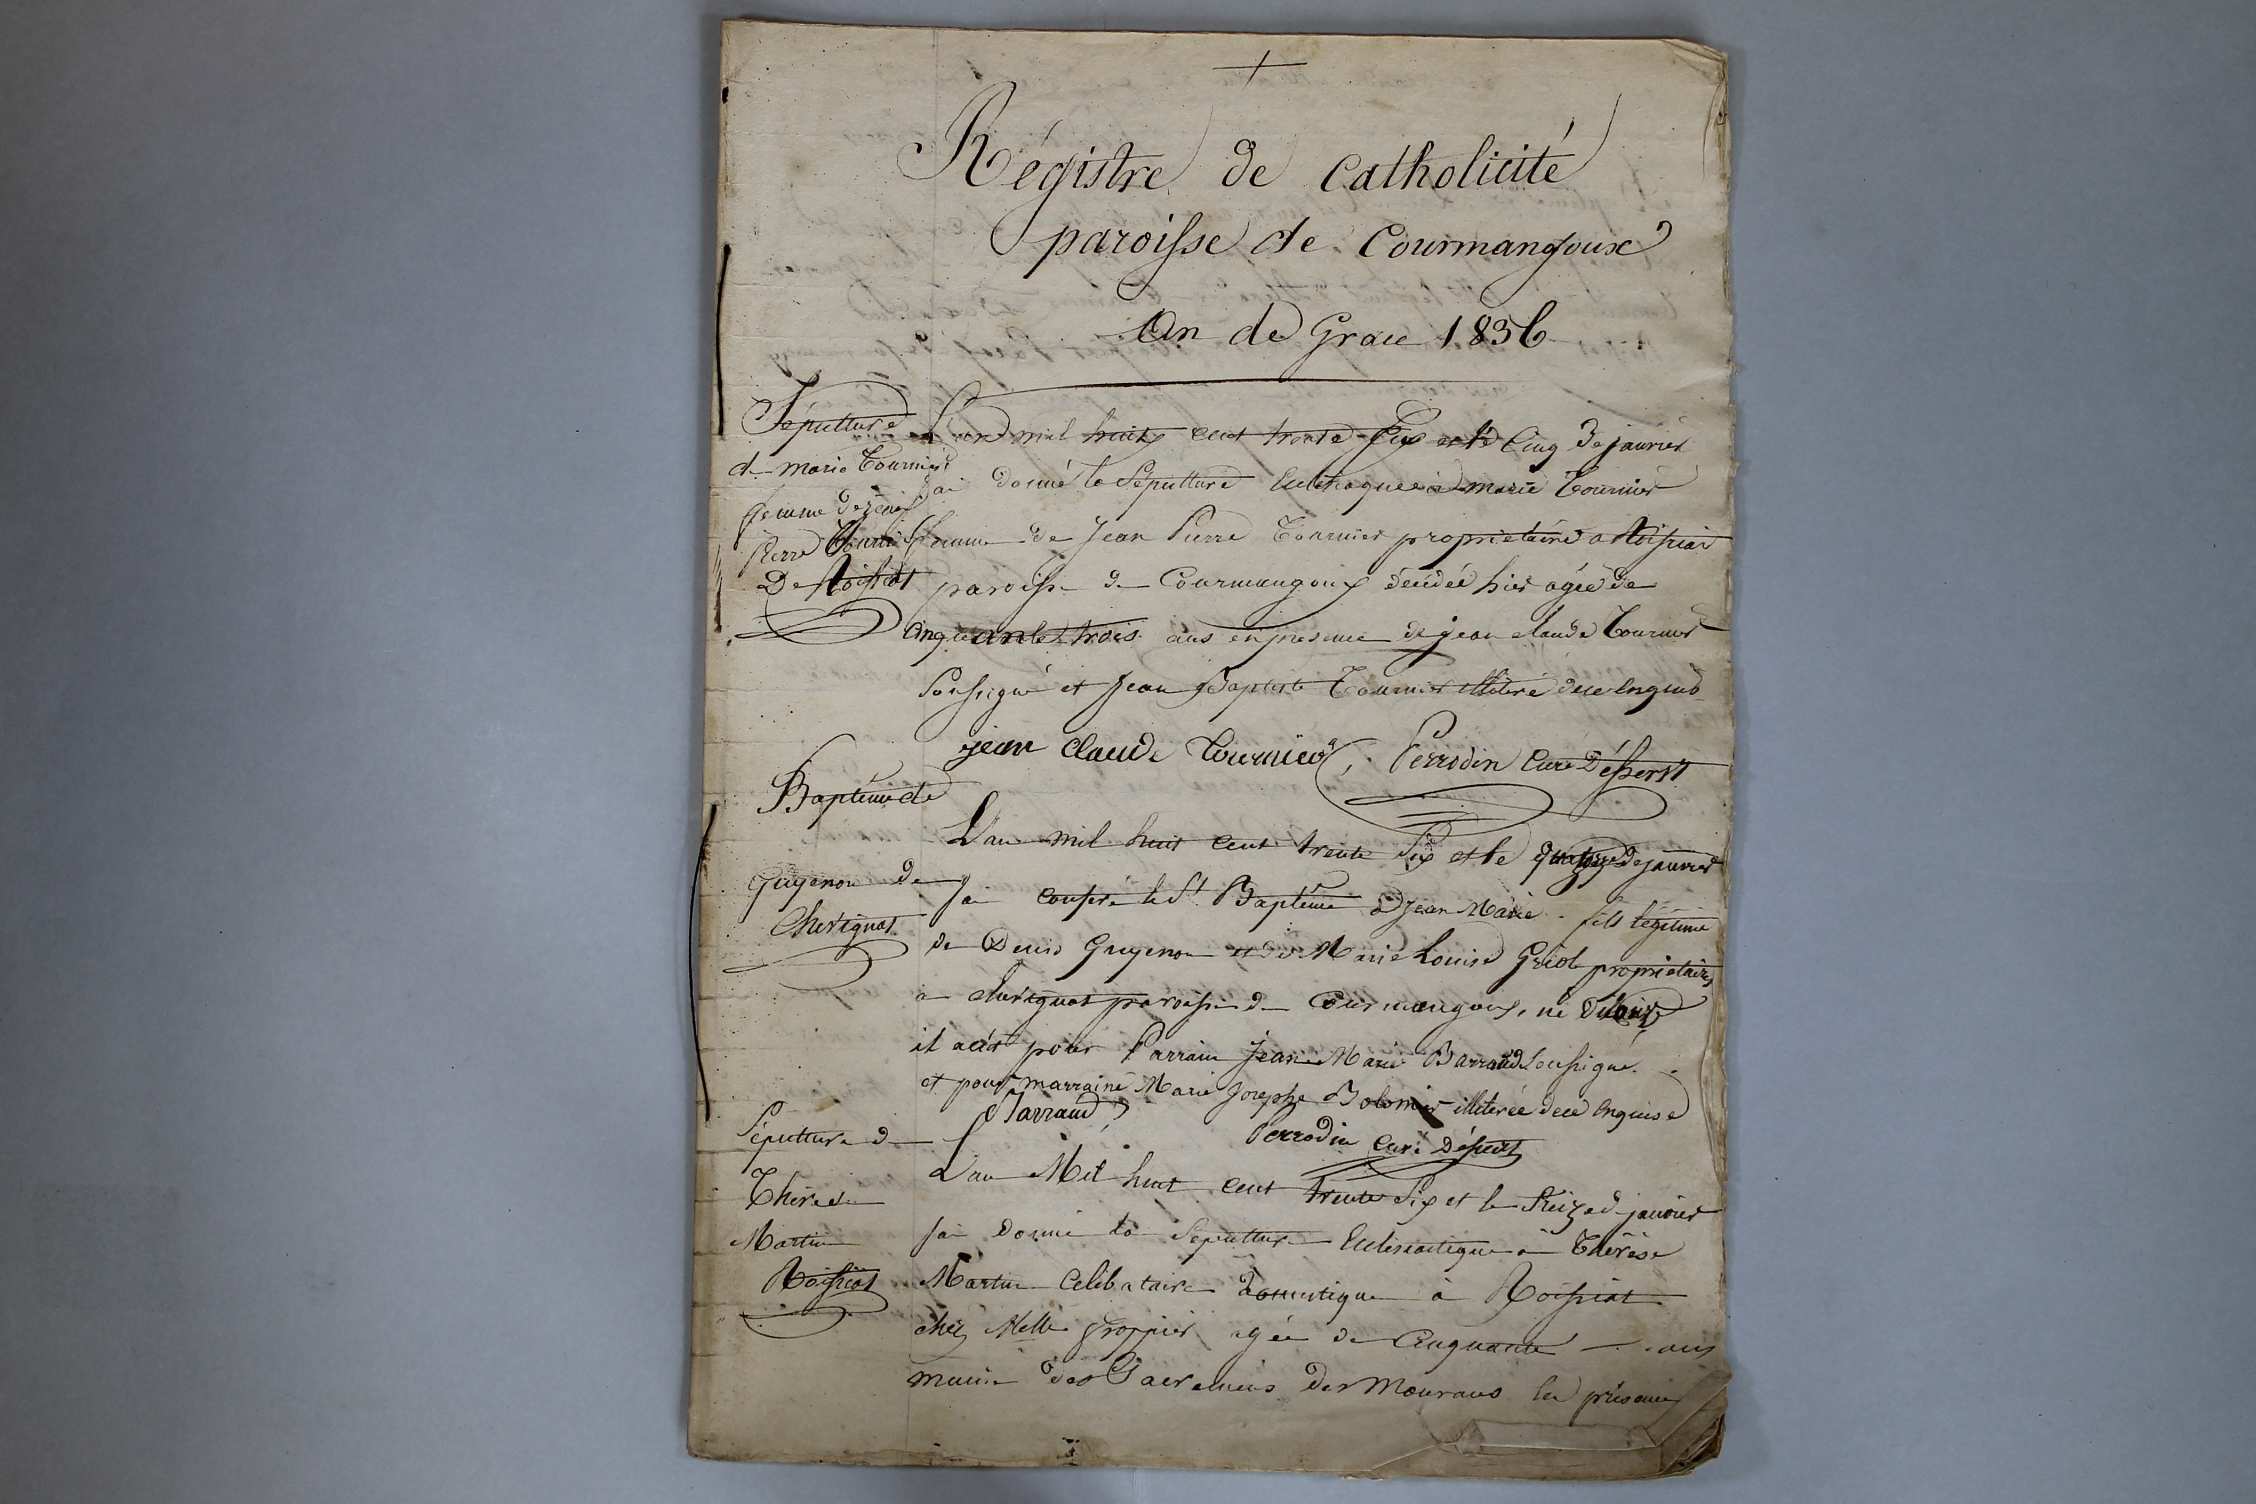 +
Régistre de Catholicité
paroisse de Courmangoux
An de Grace 1836
Sépulture
de marie Tournier
femme de jean
Pierre Tournier
De Roissiat
L'an mil huit cent trente six et le Cinq De janvier
j'ai donné la Sépulture Eclesiaque à marie Tournier
femme de Jean Pierre Tournier proprietaire a Roissiat
paroisse de Courmangoux décédée hier agée de
cinquante trois ans en presence de jean claude Tournier
Soussigné et Jean Baptiste Tournier illiteré de ce enquis
jean claude tournier, Perrodin Curé Déssert
Baptême de
Guyenon de
Chevignat
L'an mil huit cent trente six et le quatorze de janvier
j'ai conferé le St Baptême à Jean Marie fils légitime
de Denis Guyenon et de Marie Louise Griot proprietaires
a chevignat paroisse de Courmangoux, né
il a été pour Parrain Jean Marie Barraud Soussigné
et pour marraine Marie Josephe Bolomier illiterée de ce enquise
Barraud
Perrodin Curé Déssert
Sépulture de
Thérèse
Martin
Roissiat
L'an Mil huit cent trente six et le Seize de janvier
j'ai donné la Sepulture Eclesiastique à Thérèse
Martin Celibataire domestique à Roissiat
chez Melle agée de Cinquante ans
munie des Sacremens des Mourans en présence